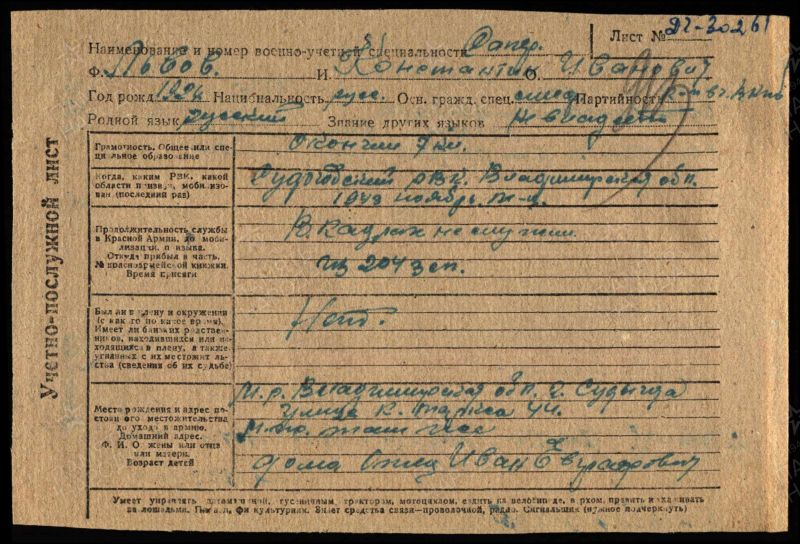 Лист № 92-30261
Наименование и номер военно-учетной специальности Сапер.
Ф. Львов. И. Константин О. Иванович
Год рожд. 1924 Национальность русс. Осн. гражд. спец. Партийность
Родной язык русский Знание других языков не владеет
Учетно-послужной лист
Грамотность. Общее или специальное образование
Окончил 7 кл.
Когда, каким РВК, какой области призван, мобилизован (последний раз)
Судогодский РВК. Владимирская обл.
1943 ноябрь м-ц.
Продолжительность службы в Красной Армии, до мобилизации, призыва.
Откуда прибыл в часть.
№ красноармейской книжки.
Время присяги
В кадрах не служил.
из 204 зсп.
Был ли в плену и окружении (с какого по какое время).
Имеет ли близких родственников, находившихся или находящихся в плену, а также угнанных с их местожительства (сведения об их судьбе)
Нет.
Место рождения и адрес постоянного местожительства до ухода в армию.
Домашний адрес.
Ф. И. О. жены или отца или матери.
Возраст детей
М.р. Владимирская обл. г. Судогда
улица К. Маркса 44.
М. жит. там же
дома Отец Иван Евграфович
Умеет управлять автомашиной, гусеничным трактором, мотоциклом, ездить на велосипеде, верхом, править и ухаживать
за лошадьми. Знает средства связи—проволочной, радио. Сигнальщик (нужное подчеркнуть)